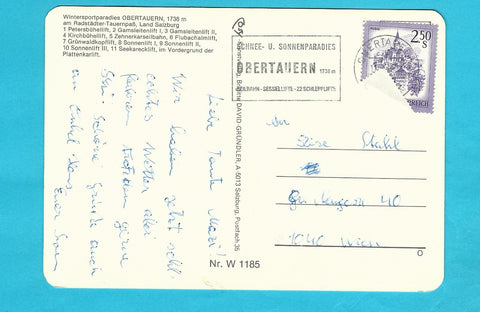 Wintersportparadies OBERTAUERN, 1738 m
am Radstädter-Tauernpaß, Land Salzburg
1 Petersbühellift, 2 Gamsleitenlift I, 3 Gamsleitenlift II,
4 Kirchbühellift, 5 Zehnerkarseilbahn, 6 Flubachalmlift,
7 Grünwaldkopflift, 8 Sonnenlift I, 9 Sonnenlift II,
10 Sonnenlift III, 11 Seekarecklift, im Vordergrund der
Plattenkarlift.
Liebe Tante
Wir haben sehr schl
echtes Wetter aber
fahren trotzdem gerne
Schi. Schöne Grüße auch
an Onkel
Euer
DAVID-GRÜNDLER, A-5013 Salzburg, Postfach 35
SCHNEE- U. SONNENPARADIES
OBERTAUERN 1738 m
SEILBAHN-SESSELLIFTE-22 SCHLEPPLIFTE
OBERTAUERN
2.50
S
REICH
An
Stahl
40
1040 Wien
Nr. W 1185